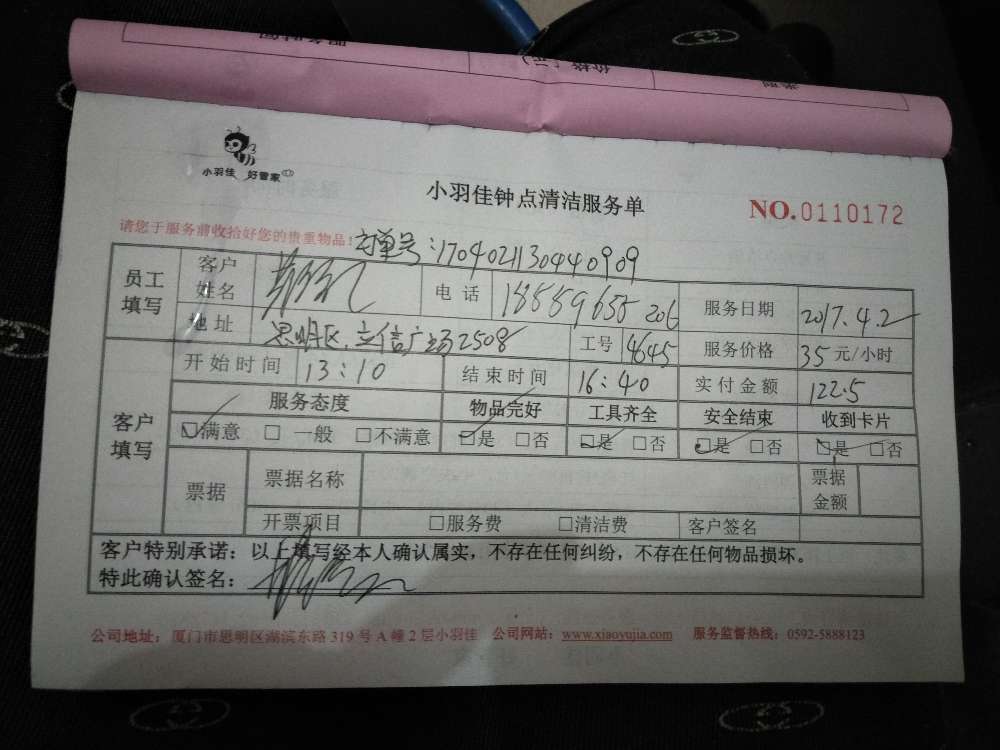 服务时间 价格(元) 类别
小羽佳 好管家
小羽佳钟点清洁服务单
NO.0110172
请您于服务前收拾好您的贵重物品!
订单号:17040211304409 09
员工填写 客户姓名 电话 18559655206 服务日期 2017.4.2
地址 思明区.立信广场2508 工号 4645 服务价格 35元/小时
客户填写 开始时间 13:10 结束时间 16:40 实付金额 122.5
服务态度 物品完好 工具齐全 安全结束 收到卡片
☑满意 □一般 □不满意 ☑是 □否 ☑是 □否 ☑是 □否 ☑是 □否
票据 票据名称 票据金额
开票项目 □服务费 □清洁费 客户签名
客户特别承诺:以上填写经本人确认属实,不存在任何纠纷,不存在任何物品损坏。
特此确认签名:
公司地址:厦门市思明区湖滨东路 319 号 A 幢 2 层小羽佳 公司网站:www.xiaoyujia.com 服务监督热线:0592-5888123